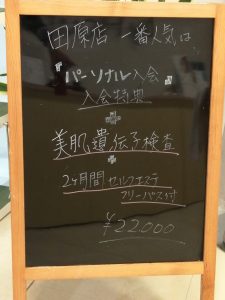 田原店 一番人気は、
『パーソナル入会
入会特典
+
美肌遺伝子検査
+
2ヶ月間セルフエステ
フリーパス付
¥22,000